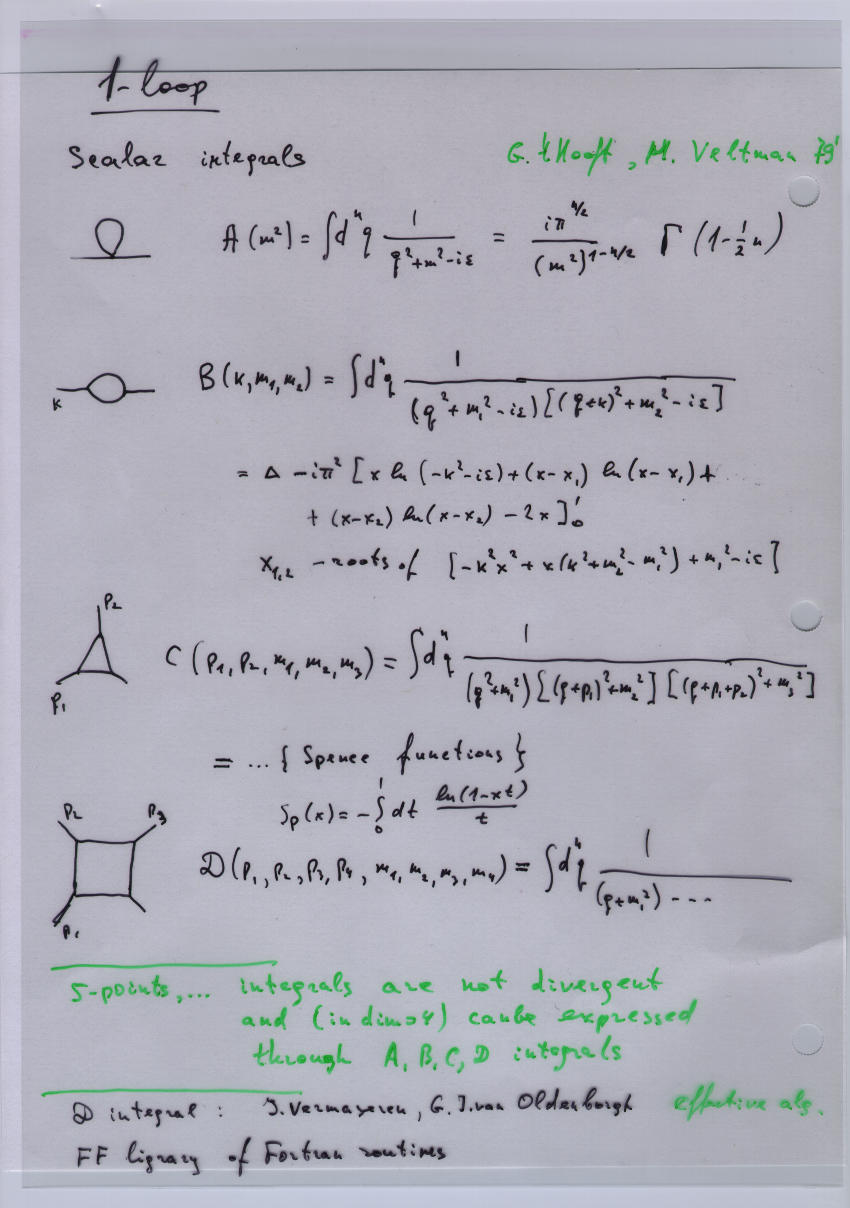 1-loop
Scalar integrals
G. 't Hooft, M. Veltman 79'
A(m²) = ∫dⁿq 1/(q²+m²-iε) = iπ^{n/2}/(m²)^{1-n/2} Γ(1-½n)
K
B(k,m₁,m₂) = ∫dⁿq 1/((q²+m₁²-iε)[(q+k)²+m₂²-iε])
= Δ - iπ² [x ln(-k²-iε) + (x-x₁) ln(x-x₁) +
+ (x-x₂) ln(x-x₂) - 2x]₀¹
x₁,₂ - roots of [-k²x² + x(k²+m₂²-m₁²) + m₁²-iε]
p₂
p₁
C(p₁,p₂,m₁,m₂,m₃) = ∫dⁿq 1/((q²+m₁²)[(q+p₁)²+m₂²][(q+p₁+p₂)²+m₃²])
= ... { Spence functions }
Sp(x) = -∫₀¹ dt ln(1-xt)/t
p₂ p₃
p₁
D(p₁,p₂,p₃,p₄,m₁,m₂,m₃,m₄) = ∫dⁿq 1/((q+m₁²) ----
5-points,... integrals are not divergent
and (in dim=4) can be expressed
through A, B, C, D integrals
D integral: J. Vermaseren, G. J. van Oldenborgh effective alg.
FF ligrary of Fortran routines